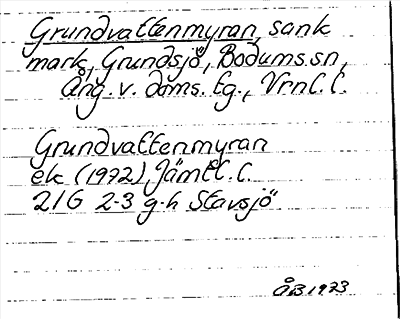 Grundvattenmyran, sank
mark, Grundsjö, Bodums.sn,
Ång. v. doms. tg., Vrnl.l.
Grundvattenmyran
ek (1972) Jämtl.l.
21G 2-3 g-h Stavsjö.
ÅB 1973